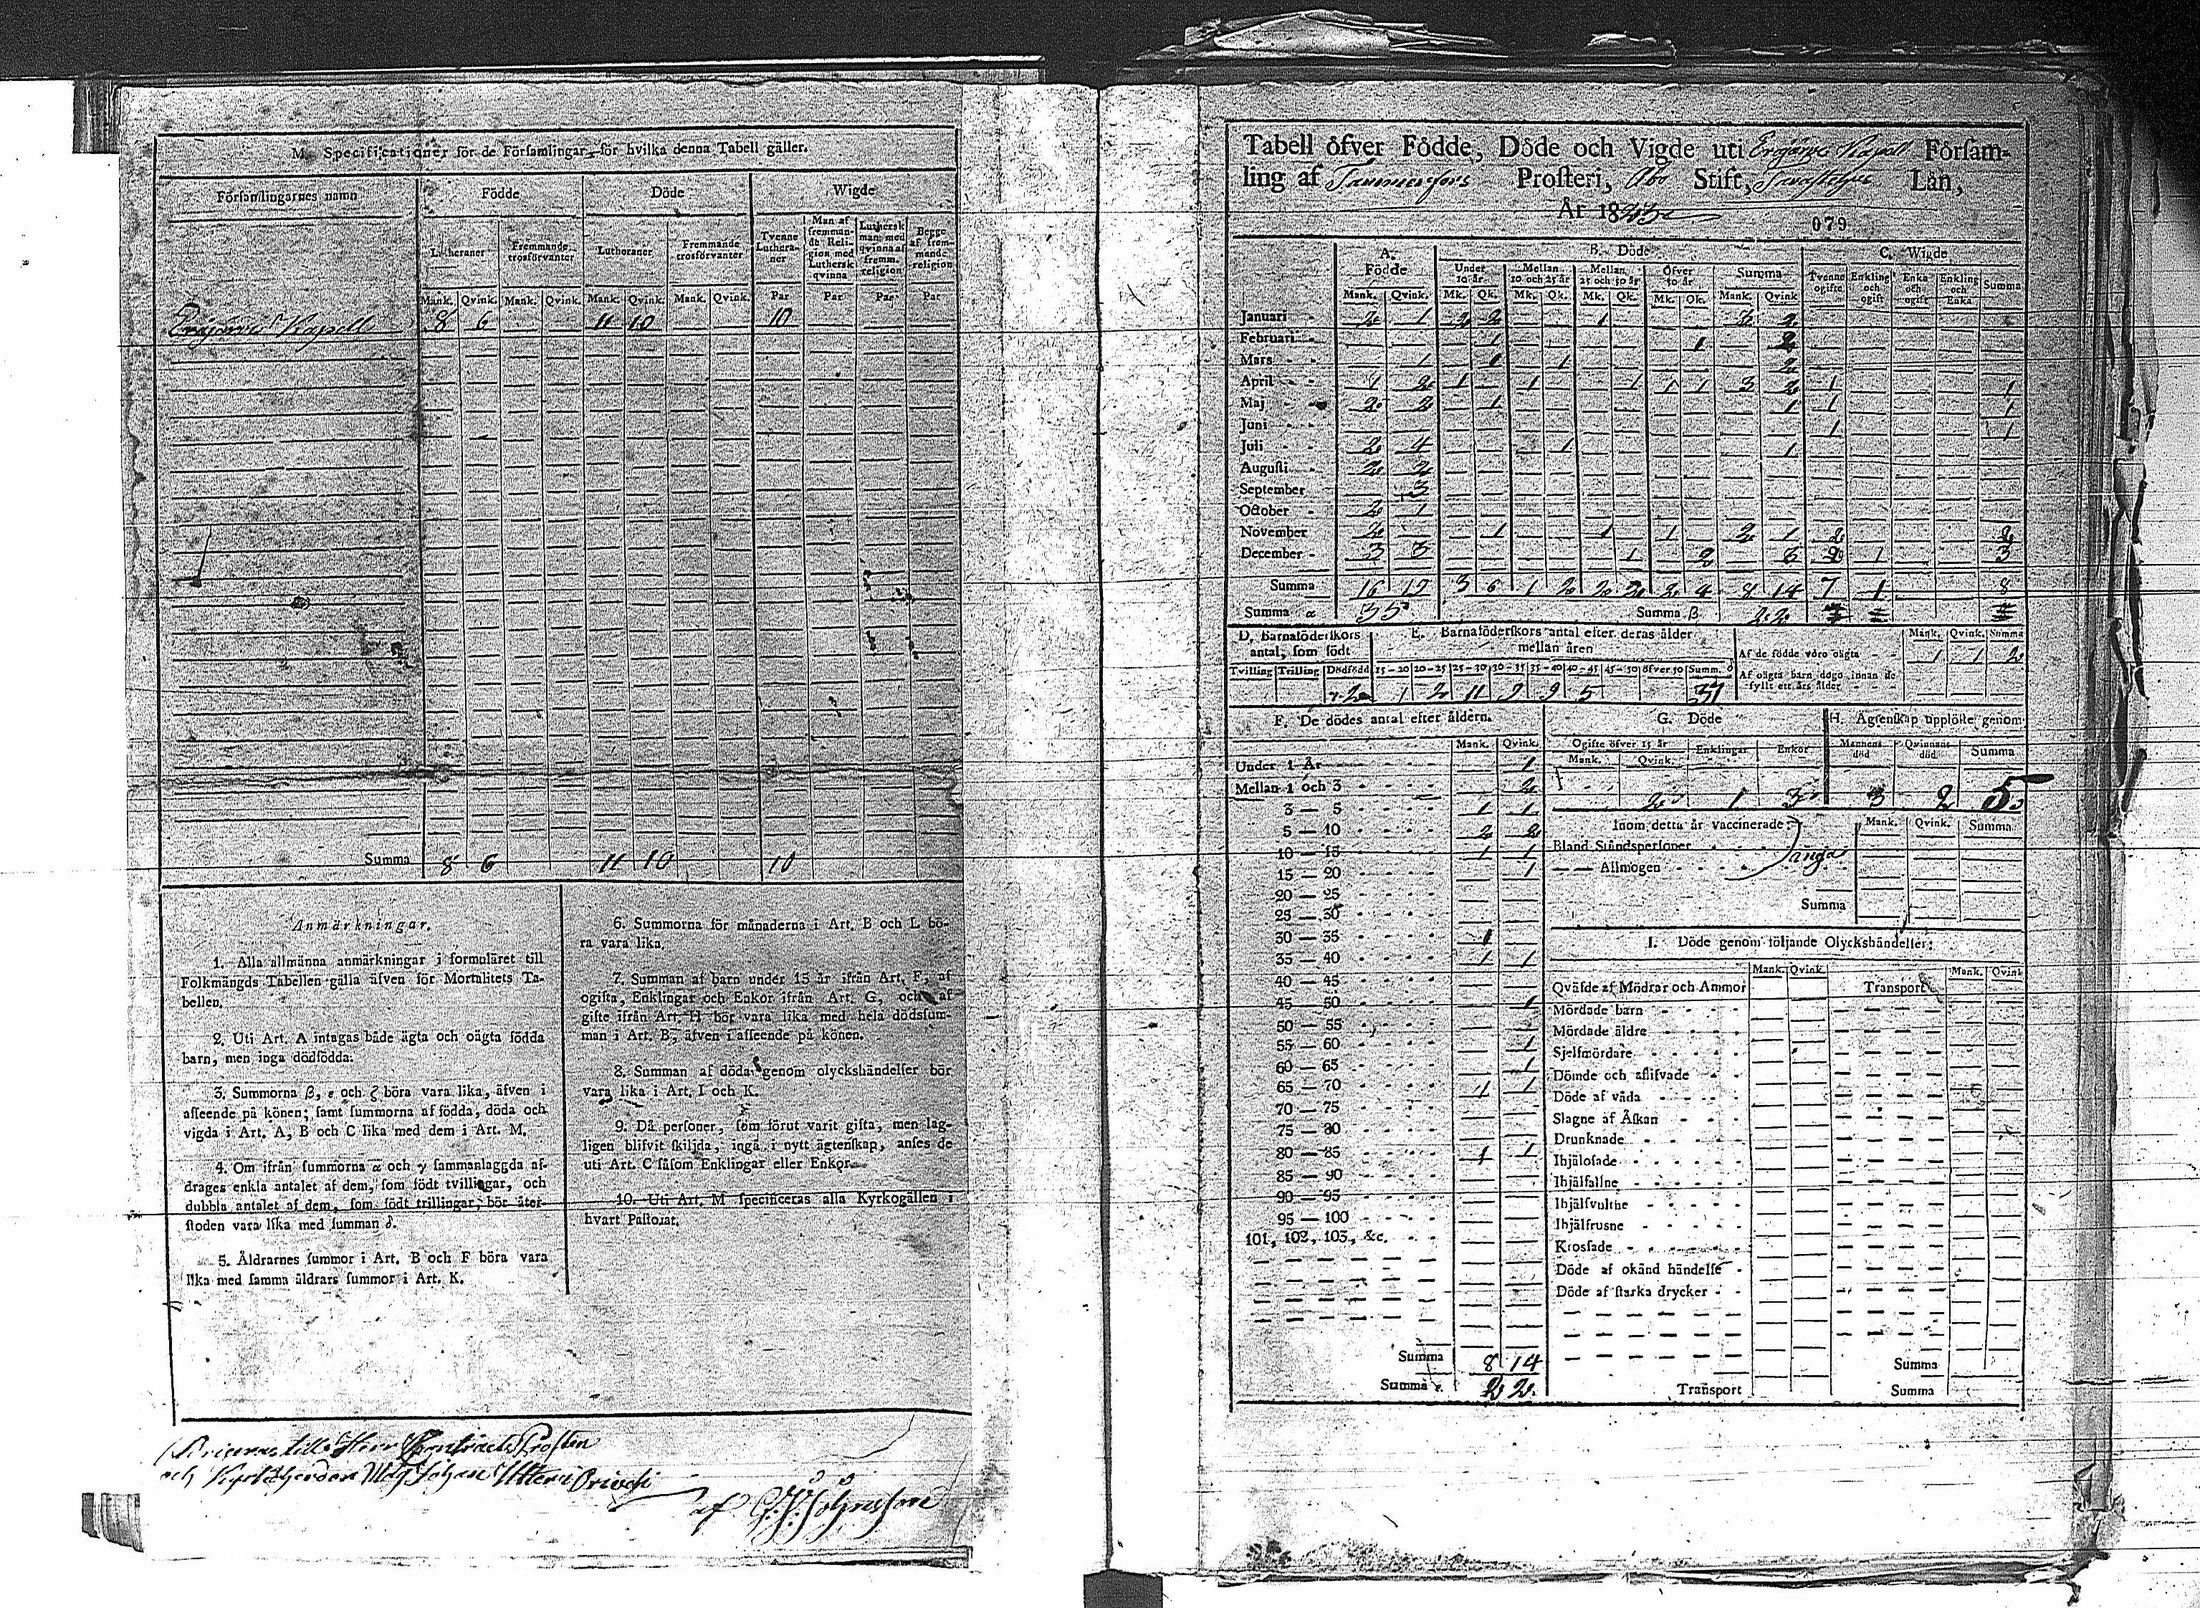 M. Specificationer för de Församlingar, för hvilka denna Tabell gäller.
Församlingarnes namn
Födde
Döde
Wigde
Lutheraner
Fremmande trosförvanter
Lutheraner
Fremmande trosförvanter
Tvenne Lutheraner
Man af fremmande Religion med Luthersk qvinna
Luthersk man med qvinna af fremm. religion
Begge af fremmande religion
Mank. Qvink. Mank. Qvink. Mank. Qvink. Mank. Qvink. Par Par Par Par
Erajärvi Kapell 8 6 11 10 10
Summa 8 6 11 10 10
Anmärkningar.
1. Alla allmänna anmärkningar i formuläret till
Folkmängds Tabellen gälla äfven för Mortalitets Ta-
bellen.
2. Uti Art. A intagas både ägta och oägta födda
barn, men inga dödfödda.
3. Summorna β, ε och ζ böra vara lika, äfven i
afseende på könen; samt summorna af födda, döda och
vigda i Art. A, B och C lika med dem i Art. M.
4. Om ifrån summorna α och γ sammanlaggda af-
drages enkla antalet af dem, som födt tvillingar, och
dubbla antalet af dem, som födt trillingar, bör åter-
stoden vara lika med summan δ.
5. Åldrarnes summor i Art. B och F böra vara
lika med samma åldrars summor i Art. K.
6. Summorna för månaderna i Art. B och L bö-
ra vara lika.
7. Summan af barn under 15 år ifrån Art. F, af
ogifta, Enklingar och Enkor ifrån Art. G, och af
gifte ifrån Art. H bör vara lika med hela dödssum-
man i Art. B, äfven i afseende på könen.
8. Summan af döda genom olyckshändelser bör
vara lika i Art. I och K.
9. Då personer, som förut varit gifta, men lag-
ligen blifvit skiljda, ingå i nytt ägtenskap, anses de
uti Art. C såsom Enklingar eller Enkor.
10. Uti Art. M specificeras alla Kyrkogällen i
hvart Pastorat.
och Kyrkoherden Mag Johan Orivesi
af
Tabell öfver Födde, Döde och Vigde uti Erajärvi Kapell Församling
af Tammerfors Prosteri, Åbo Stift, Tavastehus Län,
År 1823
079
A. Födde
B. Döde
C. Wigde
Under 10 år.
Mellan 10 och 25 år
Mellan 25 och 50 år
Öfver 50 år
Summa
Tvenne ogifte
Enkling och ogift
Enka och ogift
Enkling och Enka
Summa
Mank. Qvink. Mk. Qk. Mk. Qk. Mk. Qk. Mk. Qk. Mank. Qvink
Januari 2 1 2 2 1 3 2
Februari 1 1 2
Mars 1 1 1 2
April 1 2 1 1 1 1 1 3 2 1 1
Maj 2 2 1 1 1 1
Juni 1 1
Juli 2 4 1 1
Augusti 2 2
September 3
October 2 1
November 2 1 1 1 2 1 2 2
December 3 3 1 2 3 2 1 3
Summa 16 19 3 6 1 2 2 2 2 4 8 14 7 1 8
Summa α 35
Summa β 22
D. Barnaföderskors antal, som födt
E. Barnaföderskors antal efter deras ålder mellan åren
Mank. Qvink. Summa
Af de födde voro oägta 1 1 2
Af oägta barn dogo innan de
fyllt ett års ålder
Tvilling Trilling Dödfödd 15-20 20-25 25-30 30-35 35-40 40-45 45-50 öfver 50 Summ. δ
γ. 2 1 2 11 9 9 5 37
F. De dödes antal efter åldern.
Mank. Qvink.
Under 1 År 1
Mellan 1 och 3 2
3 — 5 1 1
5 — 10 2 2
10 — 15 1 1
15 — 20 1
20 — 25
25 — 30
30 — 35 1
35 — 40 1 1
40 — 45
45 — 50 1
50 — 55
55 — 60 1
60 — 65 1
65 — 70 1 1
70 — 75
75 — 80
80 — 85 1 1
85 — 90
90 — 95
95 — 100
101, 102, 103, &c.
Summa 8 14
Summa ε. 22
G. Döde
Ogifte öfver 15 år
Enklingar
Enkor
Mank. Qvink.
2 1 3
H. Ägtenskap upplöste genom
Mannens död
Qvinnans död
Summa
3 2 5
Inom detta år vaccinerade:
Mank. Qvink. Summa
Bland Ståndspersoner
— — Allmogen
inga
Summa
I. Döde genom följande Olyckshändelser:
Mank. Qvink. Mank. Qvink
Qväfde af Mödrar och Ammor
Transport
Mördade barn
Mördade äldre
Sjelfmördare
Dömde och aflifvade
Döde af våda
Slagne af Åskan
Drunknade
Ihjälosade
Ihjälfallne
Ihjälsvultne
Ihjälfrusne
Krossade
Döde af okänd händelse
Döde af starka drycker
Summa
Transport
Summa